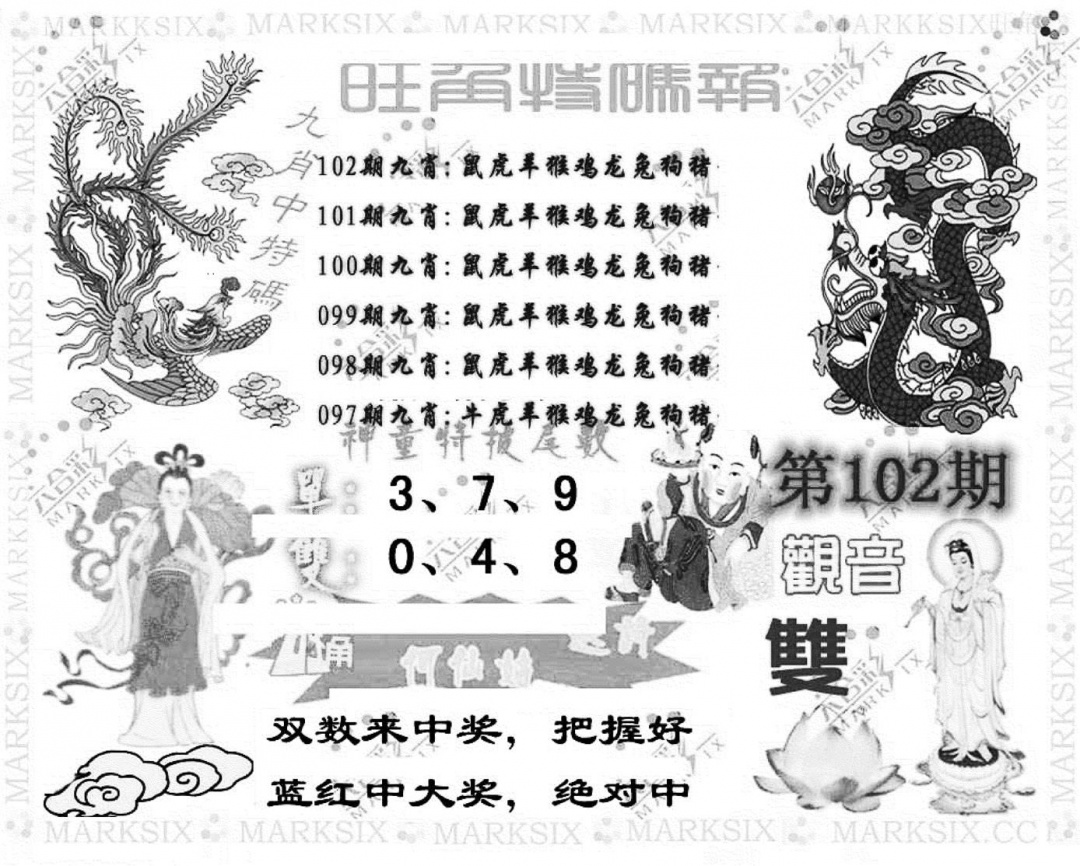 旺角特碼報
九肖中特碼
102期九肖:鼠虎羊猴鸡龙兔狗猪
101期九肖:鼠虎羊猴鸡龙兔狗猪
100期九肖:鼠虎羊猴鸡龙兔狗猪
099期九肖:鼠虎羊猴鸡龙兔狗猪
098期九肖:鼠虎羊猴鸡龙兔狗猪
097期九肖:牛虎羊猴鸡龙兔狗猪
神童特披尾數
單:3、7、9
雙:0、4、8
第102期
觀音
雙
何仙姑
双数来中奖，把握好
蓝红中大奖，绝对中
MARKSIX
MARKSIX.CC